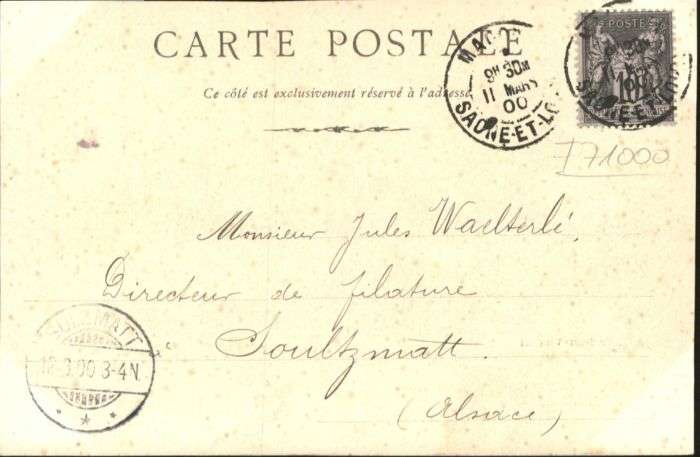 CARTE POSTALE
Ce côté est exclusivement réservé à l'adresse
POSTE
10
9H 30M
11 MARS
00
SAONE-ET-LO
T71000
Monsieur Jules Waelterlé,
Directeur de filature
Soultzmatt.
(Alsace)
MATT
12.3.00 3-4N